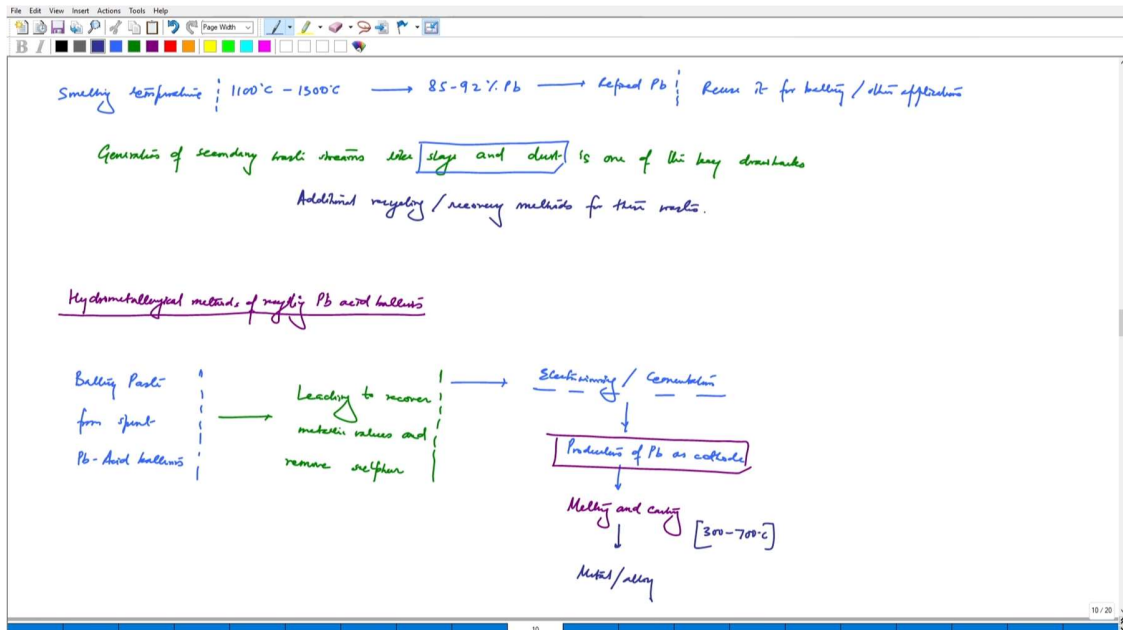 File Edit View Insert Actions Tools Help
Page Width
B I
Smelting temperature 1100°C - 1300°C → 85-92% Pb → Refined Pb Reuse it for battery / other applications
Generation of secondary waste streams like slags and dust is one of the key drawbacks
Additional recycling / recovery methods for these wastes.
Hydrometallurgical methods of recycling Pb acid batteries
Battery Paste
from spent
Pb-Acid batteries
→
Leaching to recover
metallic values and
remove sulphur
→
Electrowinning / Cementation
↓
Production of Pb as cathode
↓
Melting and casting
[300-700°C]
↓
Metal/alloy
10 / 20
10